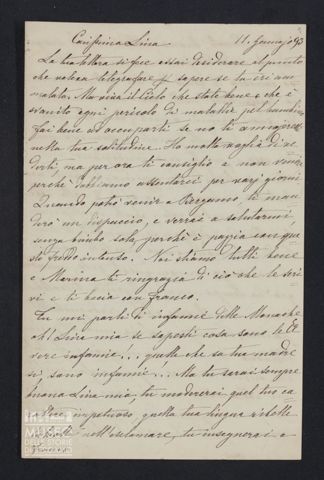 Carissima Lina 11. Gennajo 93
La tua lettera si fece assai desiderare al punto
che voleva telegrafare per sapere se tu eri am
malata. Ma viva il Cielo che state bene e che è
svanito ogni pericolo di malattia pel bambino
Fai bene ad occuparti se no ti annojeresti
nella tua solitudine. Ho molta voglia di ve
derti, ma per ora ti consiglio a non venire
perchè dobbiamo assentarci per varj giorni
Quando potrò venir a Bergamo, ti man
derò un dispaccio, e verrai a salutarmi,
senza bimbo sola, perchè è pazzia con que
sto freddo intenso. Noi stiamo tutti bene
e Marina ti ringrazia di ciò che le scri
vi e ti bacia con Franco.
Tu mi parli di infamie delle Monache
oh! Lina mia se sapesti cosa sono le ve
re infamie... quelle che sa tua madre
sì sono infamie... Ma tu sarai sempre
buona Lina mia, tu modererai quel tuo ca
impetuoso, quella tua lingua ribelle
nell'esclamare, tu insegnerai a
MUSEO
DELLE STORIE